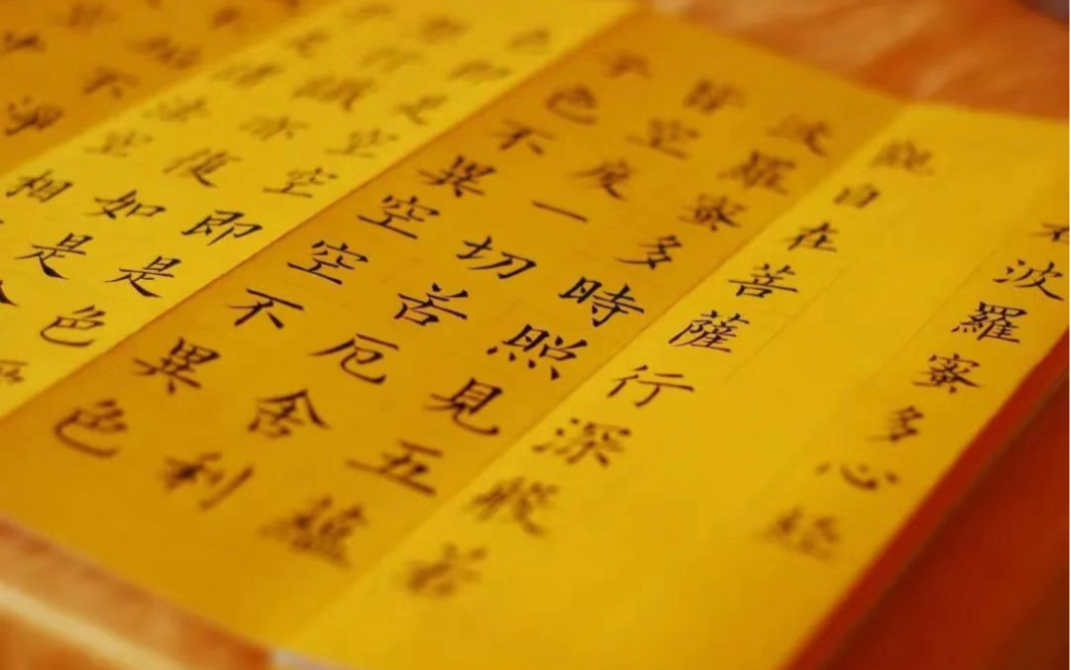 波羅蜜多心經
觀自在菩薩行深般若
波羅蜜多時照見五蘊
皆空度一切苦厄舍利
子色不異空空不異色
色即是空空即是色
想行識亦復如是
子是諸法空相
不淨